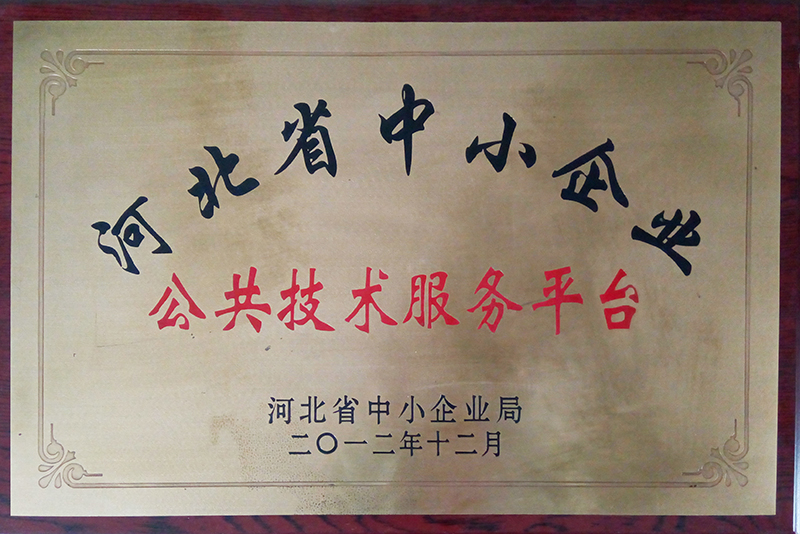 河北省中小企业
公共技术服务平台
河北省中小企业局
二〇一二年十二月